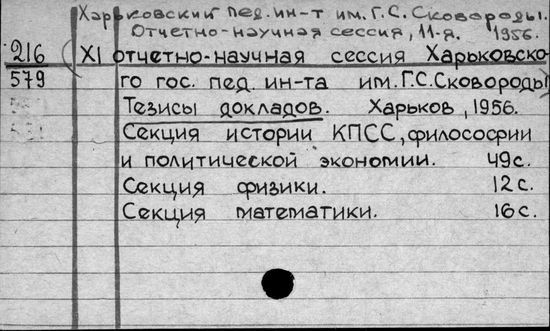 Харьковский пед. ин-т им. Г.С. Сковороды.
Отчетно-научная сессия, 11-я. 1956.
216 (XI отчетно-научная сессия Харьковско-
579 го гос. пед. ин-та им. Г.С. Сковороды)
Тезисы докладов. Харьков, 1956.
Секция истории КПСС, философии
и политической экономии. 49 с.
Секция физики. 12 с.
Секция математики. 16 с.